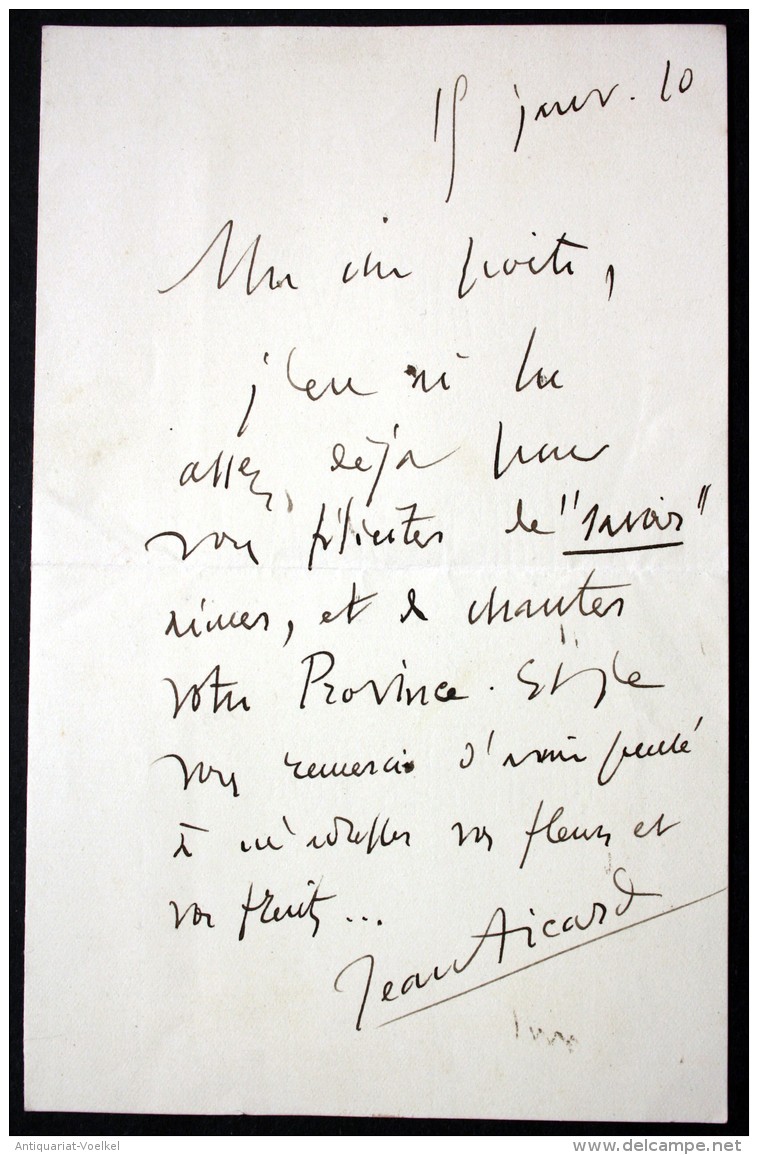 15 janv. 10
Mon cher poète,
j'en ai lu
assez déjà pour
vous féliciter de "savoir"
rimer, et de chanter
votre Province. Et je
vous remercie d'avoir pensé
à m'adresser vos fleurs et
vos fruits...
Jean Aicard
Antiquariat-Voelkel
delcampe.net